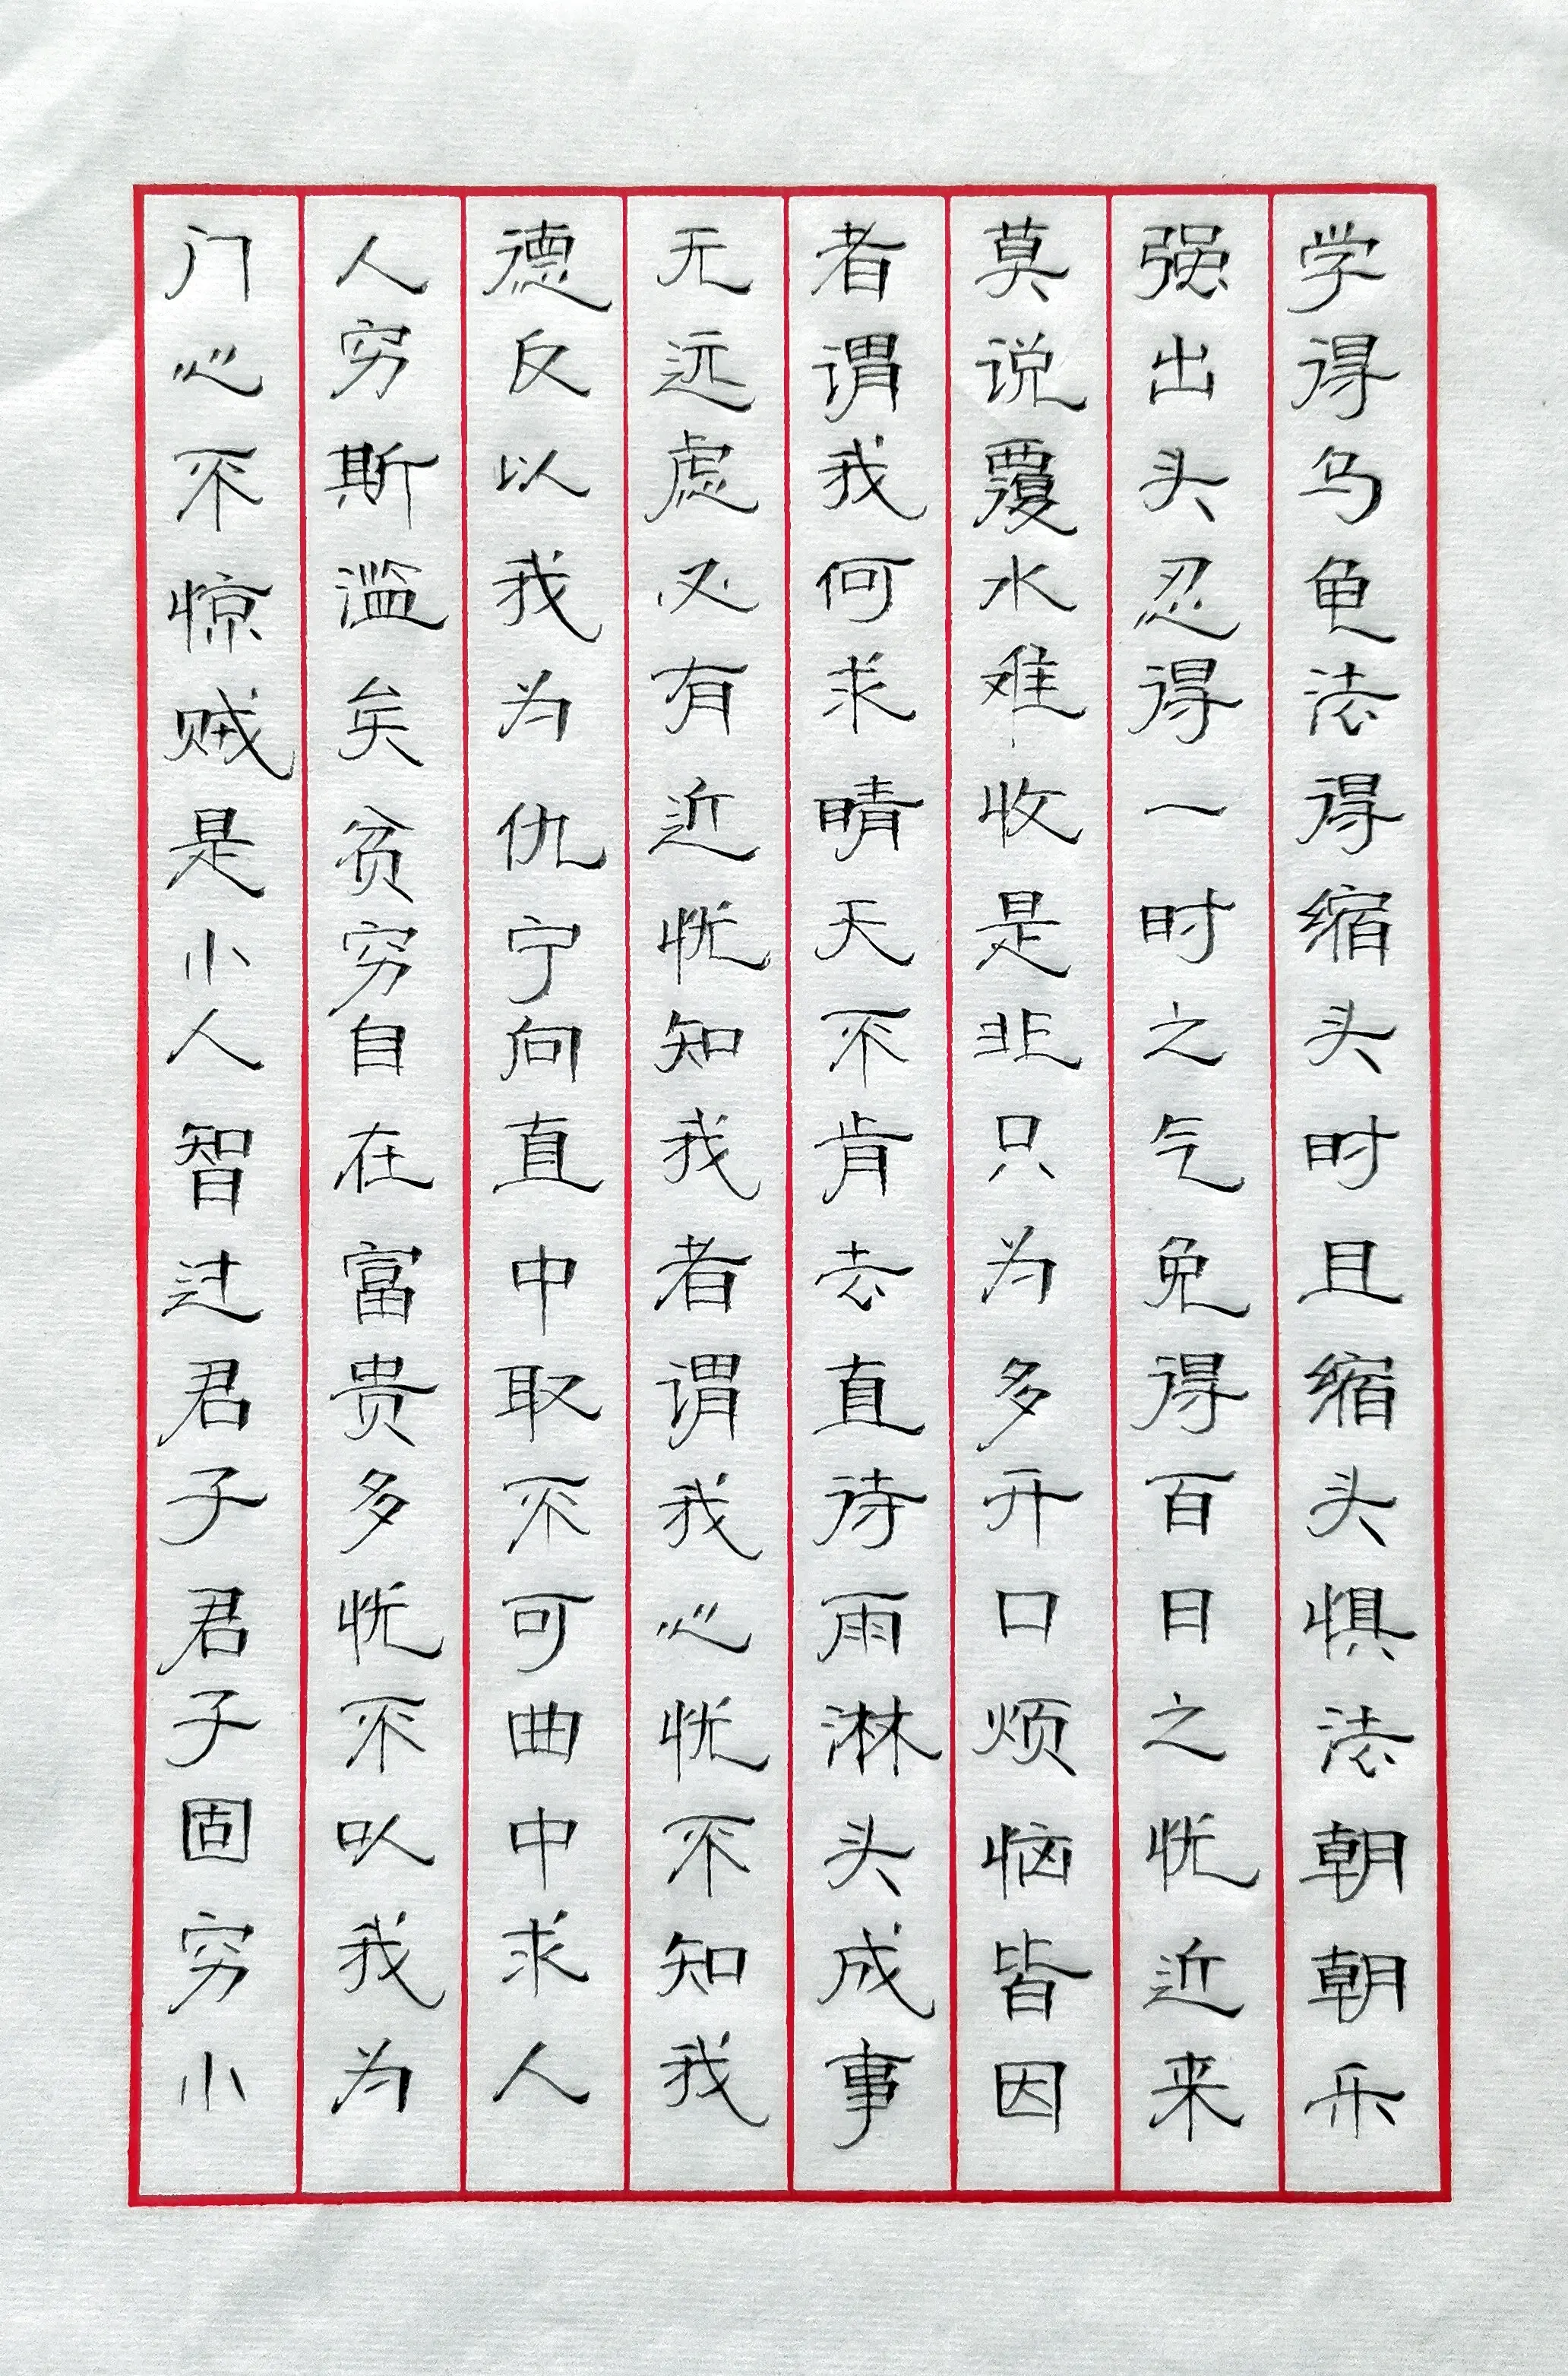 学得乌龟法得缩头时且缩头惧法朝朝乐
强出头忍得一时之气免得百日之忧近来
莫说覆水难收是非只为多开口烦恼皆因
者谓我何求晴天不肯去直待雨淋头成事
无远虑必有近忧知我者谓我心忧不知我
德反以我为仇宁向直中取不可曲中求人
人穷斯滥矣贫穷自在富贵多忧不以我为
门心不惊贼是小人智过君子君子固穷小